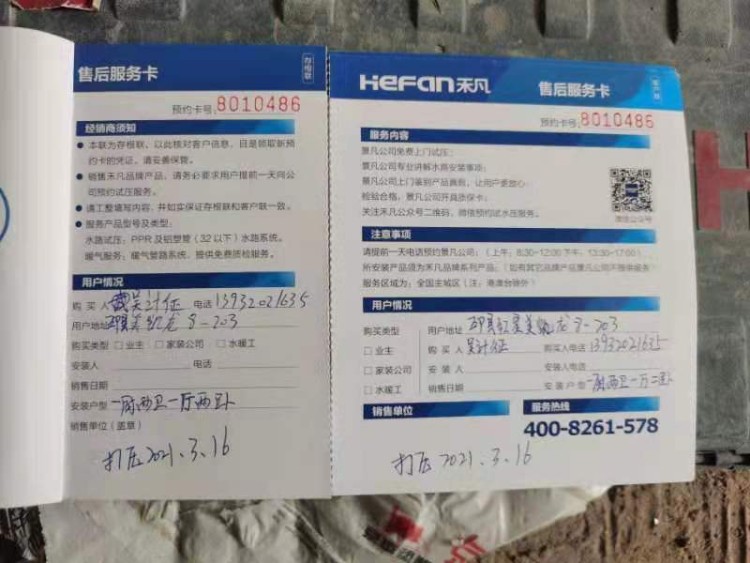 售后服务卡
存根联
预约卡号:8010486
经销商须知
● 本联为存根联,以此核对客户信息,且是领取新预
约卡的凭证,请妥善保管。
● 销售禾凡品牌产品,请务必要求用户提前一天向公
司预约试压服务。
● 请工整填写内容,并如实保证存根联和客户联一致。
● 服务产品型号及类型:
水路试压:PPR及铝塑管(32以下)水路系统。
暖气服务:暖气管路系统,提供免费质检服务。
用户情况
购买人 吴计征 电话 13932021635
用户地址 龙 8-203
购买类型 □业主 □家装公司 □水暖工
安装人 电话
销售日期
安装户型 一厨两卫一厅两卧
销售单位(盖章)
打压2021.3.16
HeFan禾凡 售后服务卡
预约卡号:8010486
服务内容
景凡公司免费上门试压;
景凡公司专业讲解水路安装事项;
景凡公司上门鉴别产品真假,让用户更放心;
检验合格,景凡公司开具质保卡;
关注禾凡公众号二维码,微信预约试水压服务。
微信公众号
注意事项
请提前一天电话预约景凡公司:(上午:8:30-12:00 下午:13:30-17:00)。
所安装产品须为禾凡品牌系列产品。(如有其它品牌产品景凡公司不提供服务
服务区域为:全国主城区(注:港澳台除外)
用户情况
购买类型 用户地址 红星美 龙 8-203
□业主 购买人 吴计征 购买人电话 13932021635
□家装公司 安装人 安装人电话
□水暖工 销售日期 安装户型 一厨两卫一厅二卧
销售单位 服务热线
400-8261-578
打压2021.3.16